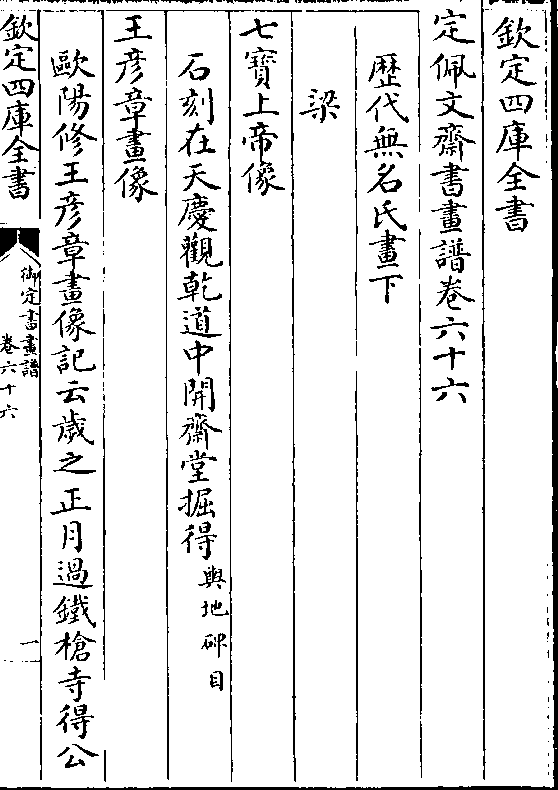 欽定四庫全書
定佩文齋書畫譜卷六十六
歴代無名氏畫下
梁
七寶上帝像
石刻在天慶觀乾道中開齋堂掘得輿地碑目
王彦章畫像
歐陽修王彦章畫像記云歲之正月過鐵槍寺得公
欽定四庫全書
御定書畫譜
卷六十六
一